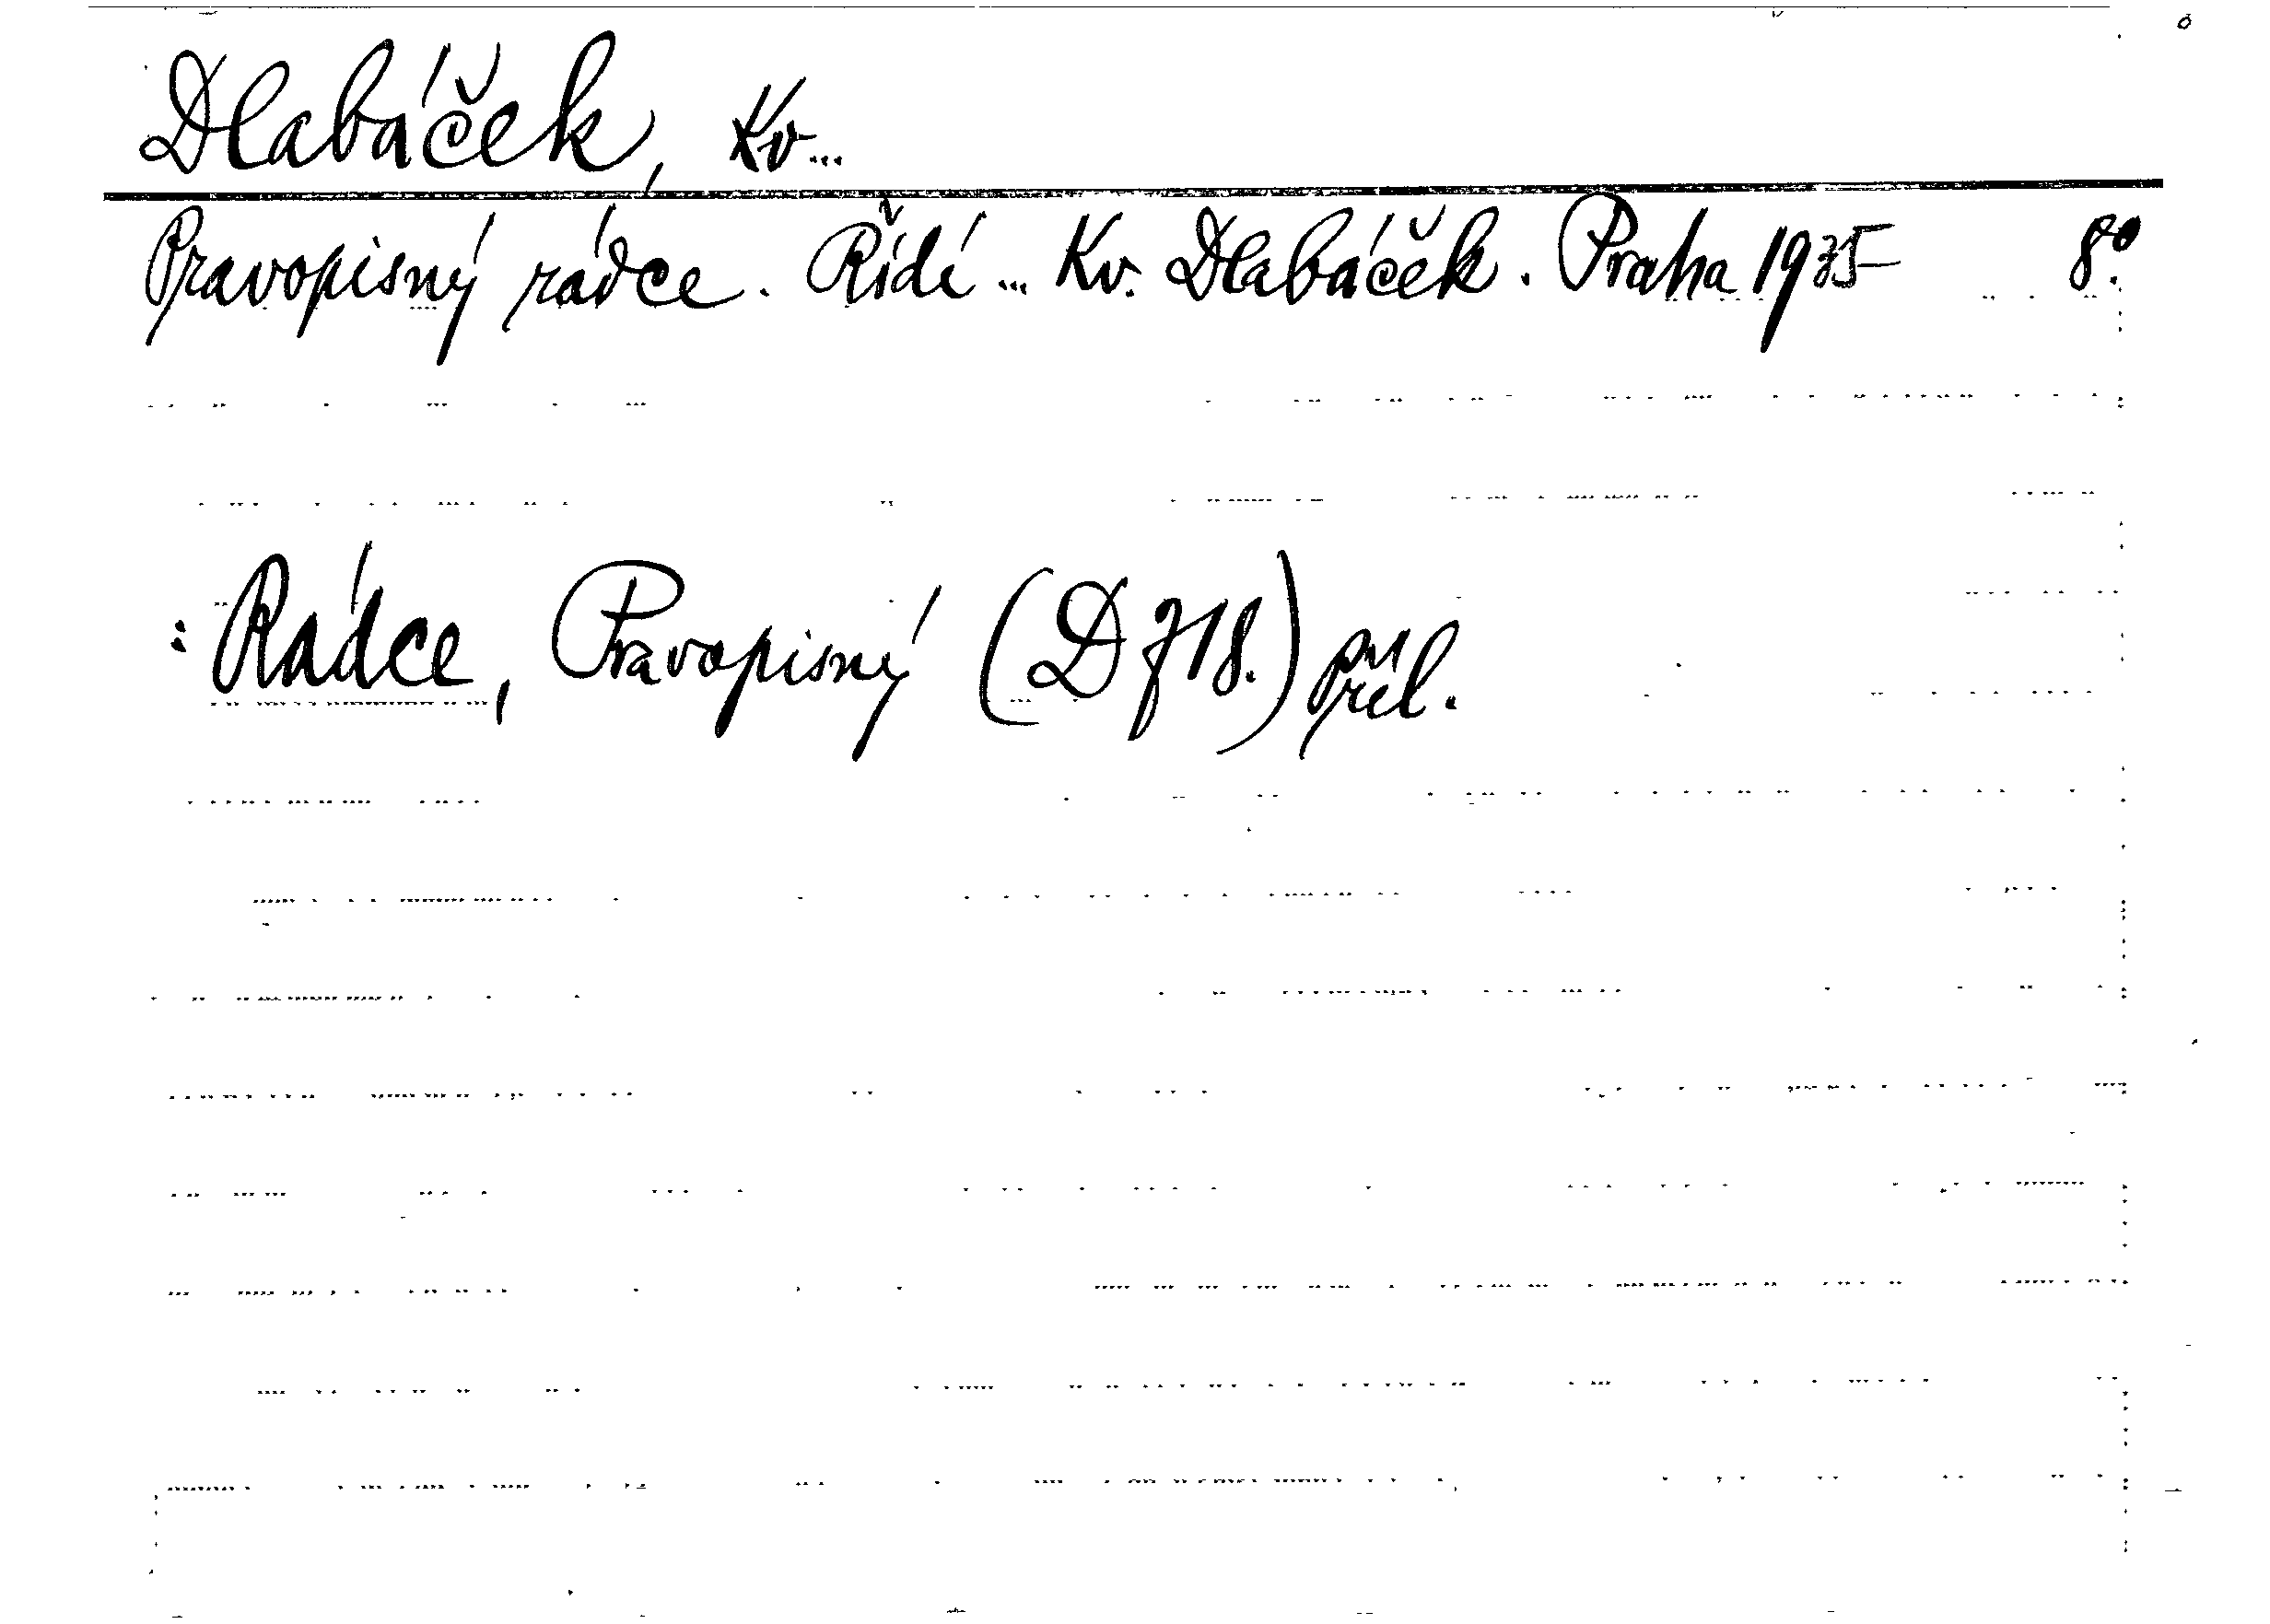 Dlabáček, Kv...
Pravopisný rádce. Řídí ... Kv. Dlabáček. Praha 1935 8º.
: Rádce, Pravopisný (D f 18.) příl.